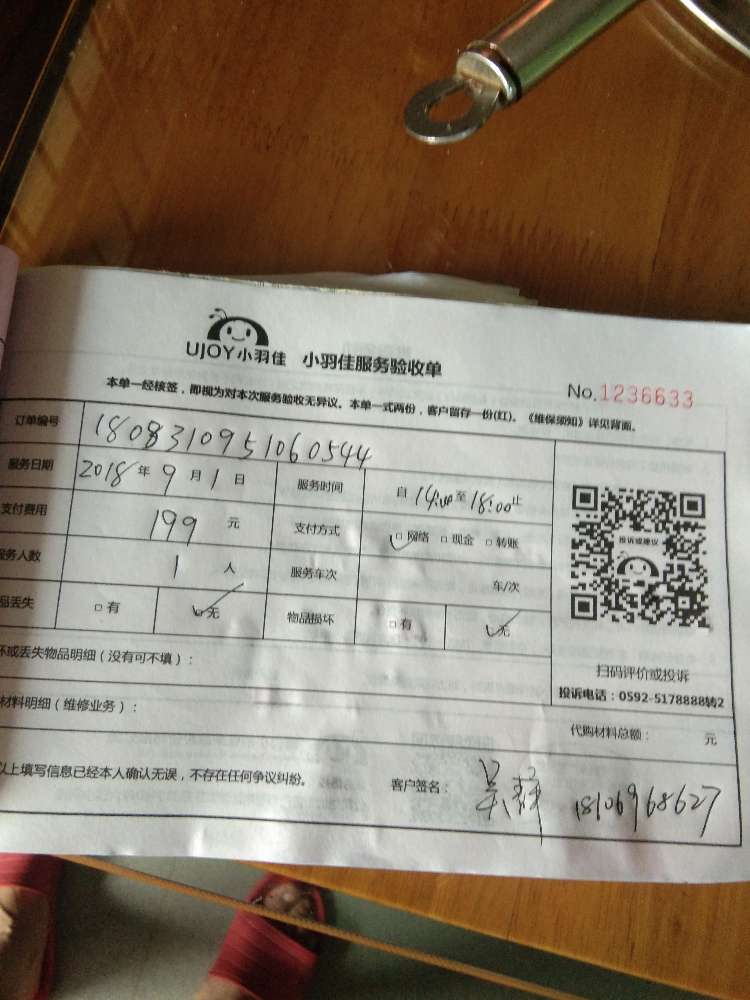 UJOY小羽佳 小羽佳服务验收单
No.1236633
本单一经核签，即视为对本次服务验收无异议。本单一式两份，客户留存一份(红)。《维保须知》详见背面。
订单编号 1808310951060544
服务日期 2018年9月1日 服务时间 自14:00至18:00止
支付费用 199元 支付方式 □网络 □现金 □转账
服务人数 1人 服务车次 车/次
品丢失 □有 □无 物品损坏 □有 □无
投诉或建议
扫码评价或投诉
投诉电话：0592-5178888转2
坏或丢失物品明细（没有可不填）：
材料明细（维修业务）：
代购材料总额： 元
以上填写信息已经本人确认无误，不存在任何争议纠纷。 客户签名： 18106968627